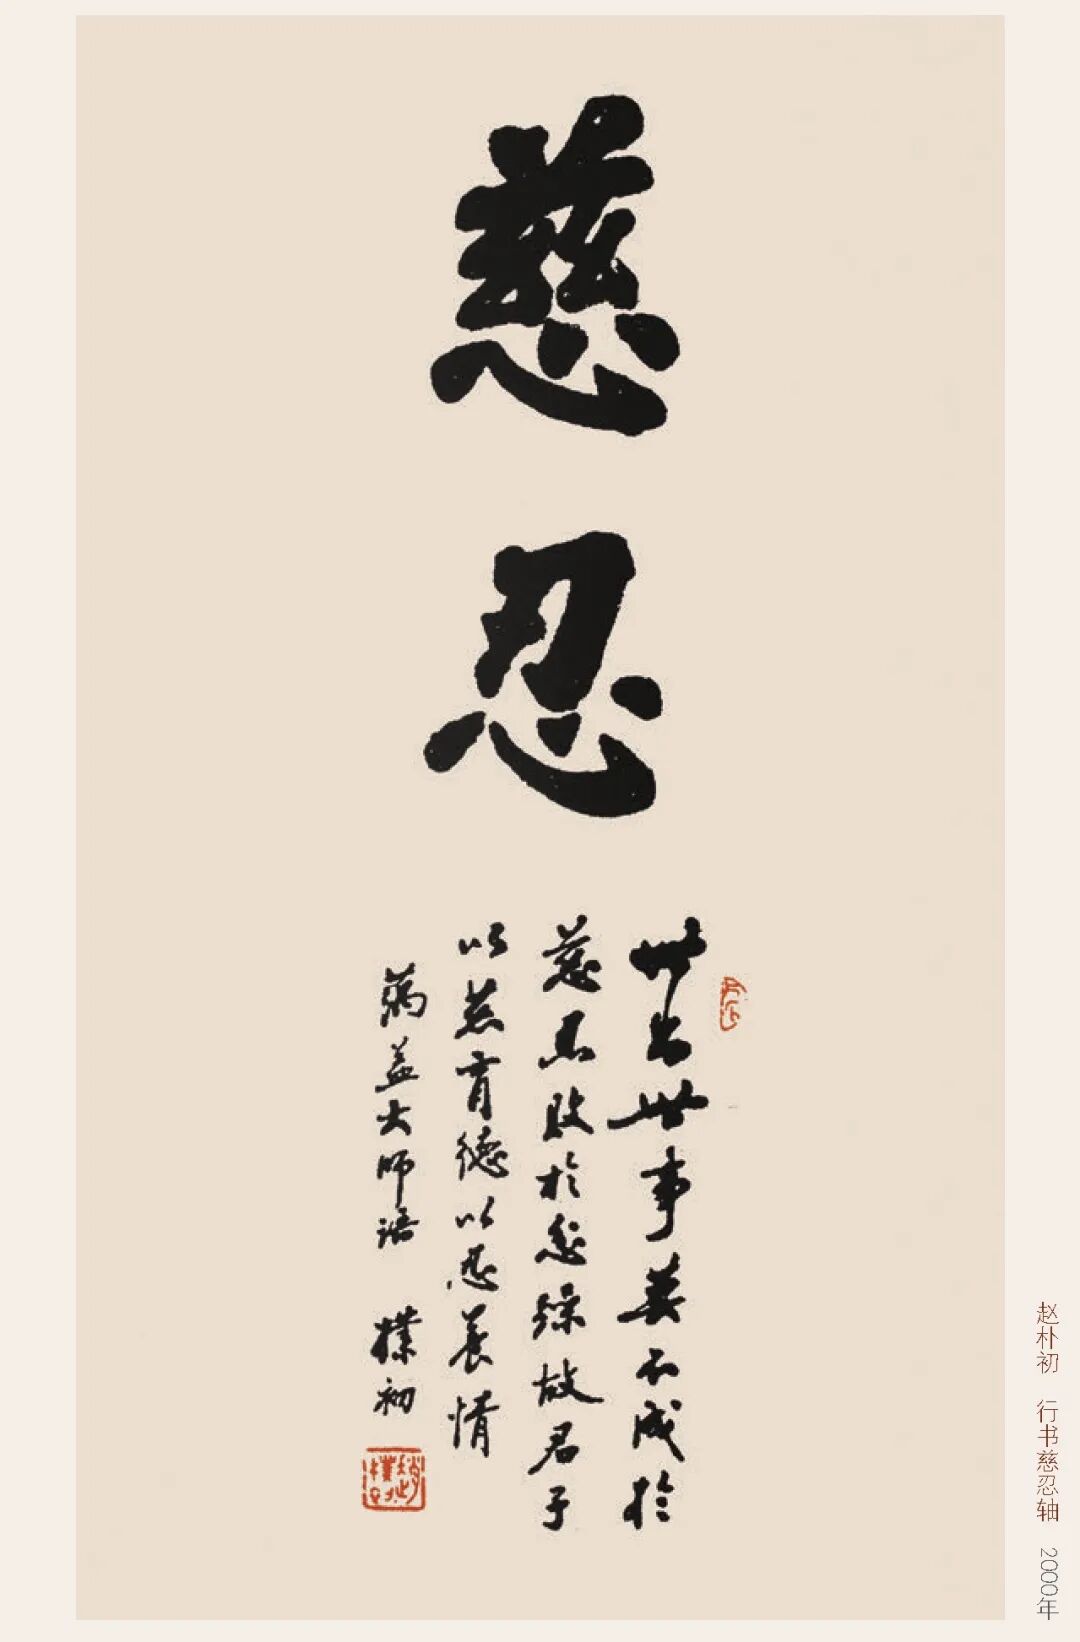 慈忍
世出世事莫不成於
慈忍敗於忿躁故君子
以慈育德以忍養情
蕅益大師語 樸初
赵朴初 行书慈忍轴 2000年